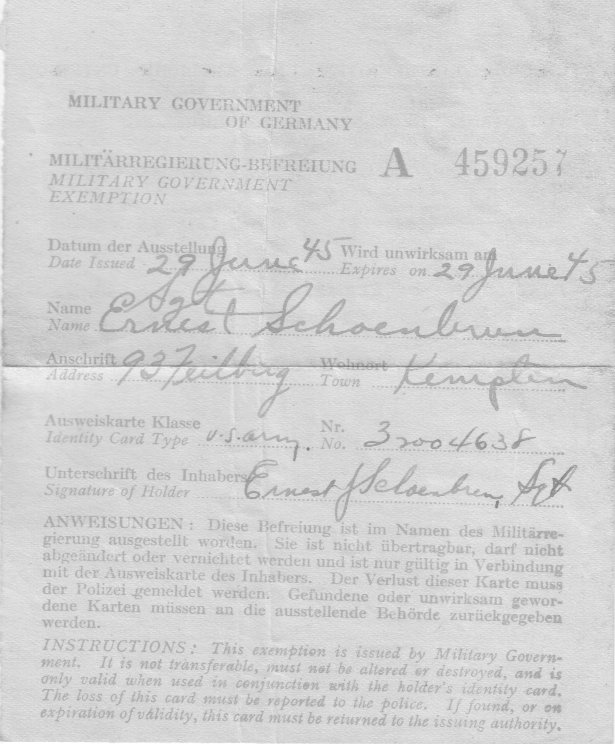 MILITARY GOVERNMENT
OF GERMANY
MILITÄRREGIERUNG-BEFREIUNG A 459257
MILITARY GOVERNMENT
EXEMPTION
Datum der Ausstellung Wird unwirksam am
Date Issued 29 June 45 Expires on 29 June 45
Sgt
Name
Name Ernest Schoenbrun
Anschrift Wohnort
Address 93 Town Kempten
Ausweiskarte Klasse Nr.
Identity Card Type U.S. army. No. 32004638
Unterschrift des Inhabers
Signature of Holder Ernest J Schoenbrun, Sgt
ANWEISUNGEN : Diese Befreiung ist im Namen des Militärre-
gierung ausgestellt worden. Sie ist nicht übertragbar, darf nicht
abgeändert oder vernichtet werden und ist nur gültig in Verbindung
mit der Ausweiskarte des Inhabers. Der Verlust dieser Karte muss
der Polizei gemeldet werden. Gefundene oder unwirksam gewor-
dene Karten müssen an die ausstellende Behörde zurückgegeben
werden.
INSTRUCTIONS : This exemption is issued by Military Govern-
ment. It is not transferable, must not be altered or destroyed, and is
only valid when used in conjunction with the holder's identity card.
The loss of this card must be reported to the police. If found, or on
expiration of validity, this card must be returned to the issuing authority.